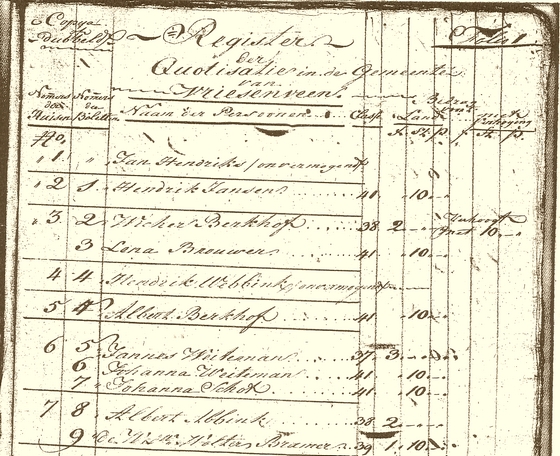 Copya
dubbeld
Register
Folio 1
der
Quotisatie in der Gemeente
van
Vriesenveen.
Nomers der Huisen Nomers der Billetten Naam der Persoonen Classe Bedrag voor 't Land f. St. p. f. St. p.
No.
1 " Jan Hendriks / onvermogend
2 1 Hendrik Jansen 41 " 10
3 2 Wicher Berkhof 38 2 Verhoogt met 10
3 Lena Brouwer 41 " 10
4 4 Hendrik Webbink / onvermogend
5 4 Albert Berkhof 41 " 10
6 5 Jannes 37 3
6 Johanna Weitman 41 " 10
7 Johanna Schot 41 " 10
7 8 Albert Abbink 38 2
9 de Wed. Wolter Bramer 39 1 10